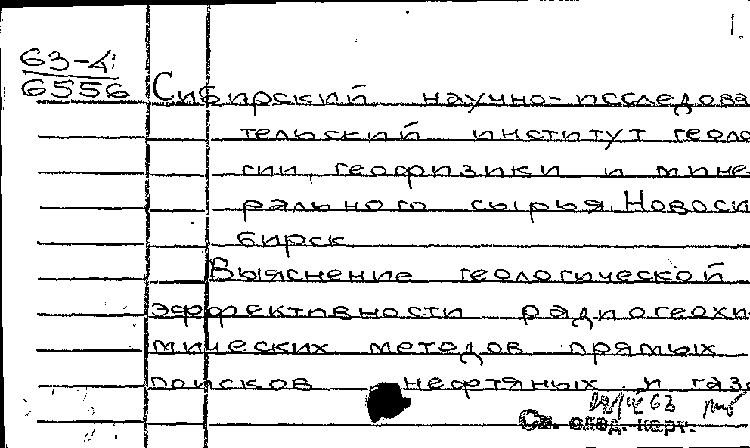 1.
63-4
6556
Сибирский научно-исследова
тельский институт геоло
гии, геофизики и мине
рального сырья. Новоси
бирск
Выяснение геологической
эффективности радиогеохи
мических методов прямых
поисков нефтяных и газо
63
См. след. карт.